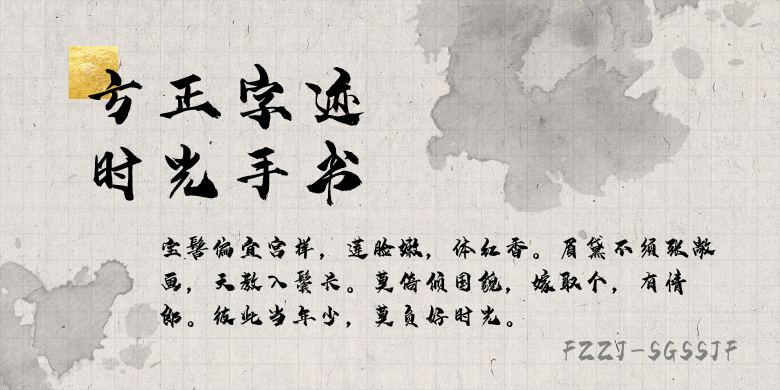 方正字迹
时光手书
宝髻偏宜宫样，莲脸嫩，体红香。眉黛不须张敞
画，天教入鬓长。莫倚倾国貌，嫁取个，有情
郎。彼此当年少，莫负好时光。
FZZJ-SGSSJF